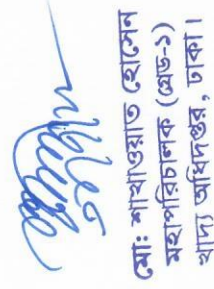 মো: শাখাওয়াত হোসেন
মহাপরিচালক (গ্রেড-১)
খাদ্য অধিদপ্তর, ঢাকা।